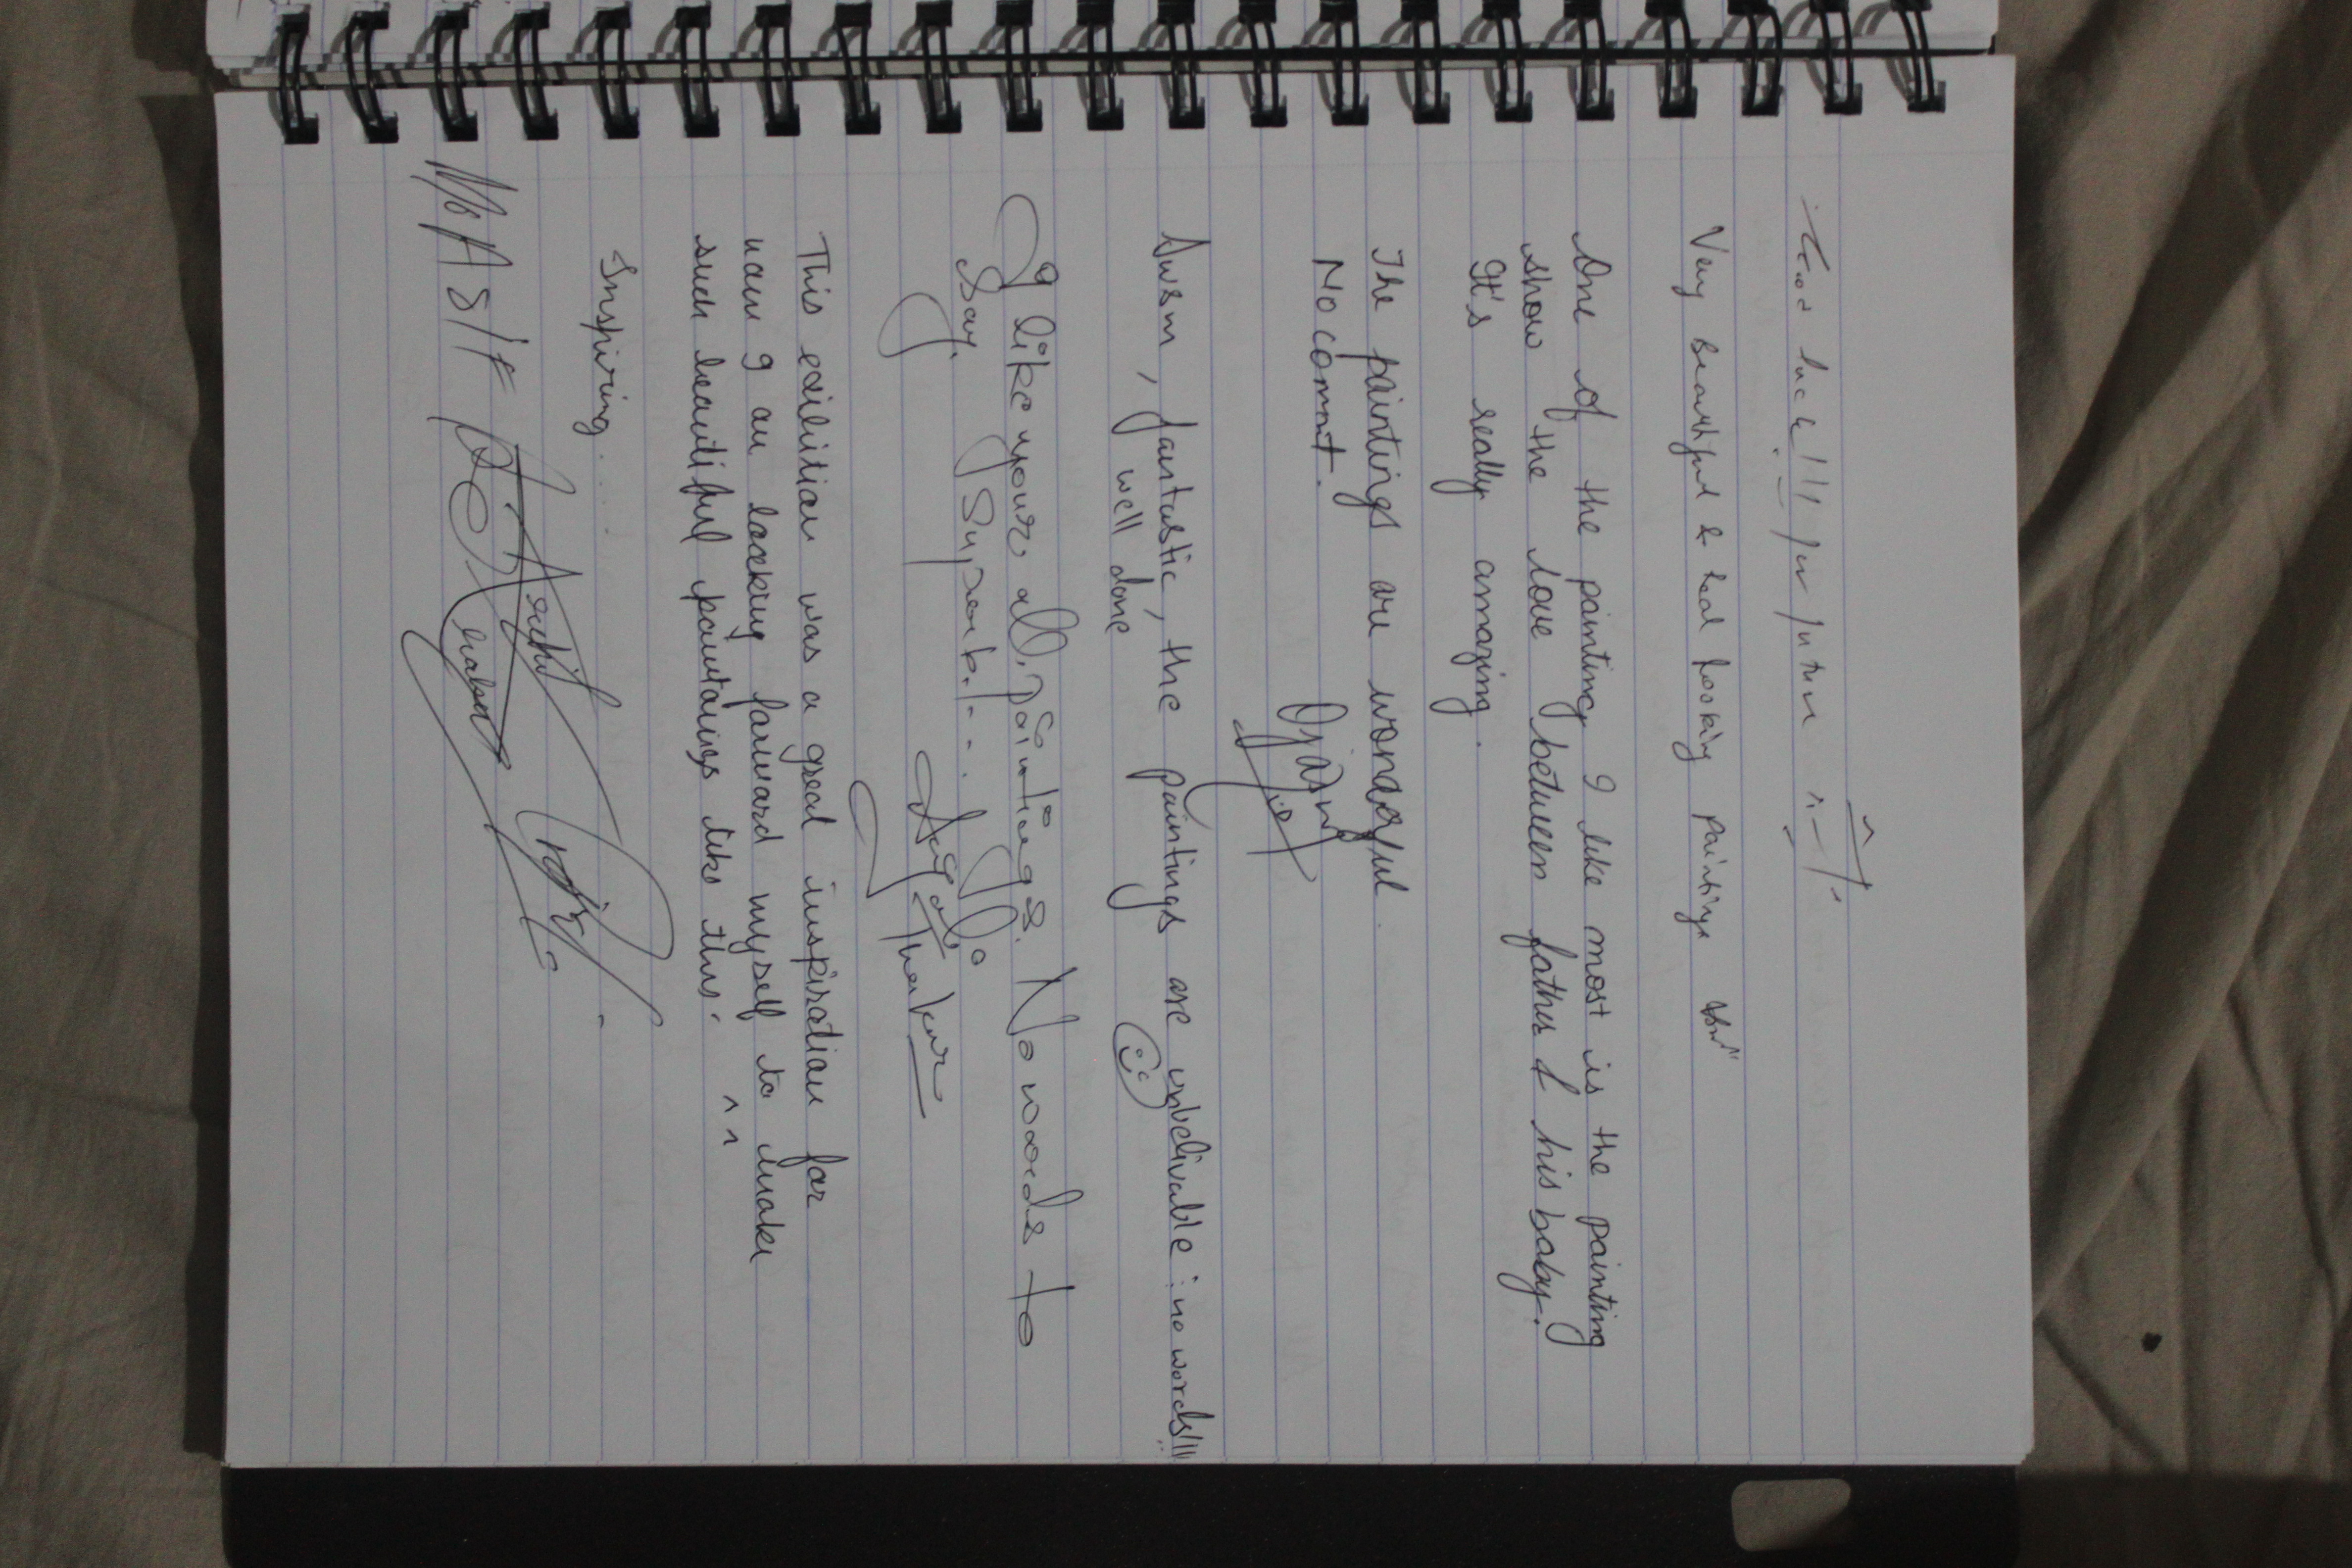 Good luck!!! for future
Very Beautiful & Real looking paintings
One of the painting I like most is the painting
show the love between father & his baby.
It's really amazing.
The paintings are wonderful.
No commt.
Awsm, fantastic, the paintings are unbelivable : no words!!!
well done
I like your all paintings. No words to
say.
This exibition was a great inspiration for
now I am looking forward myself to make
such beautiful paintings like this. ^ ^
Inspiring....